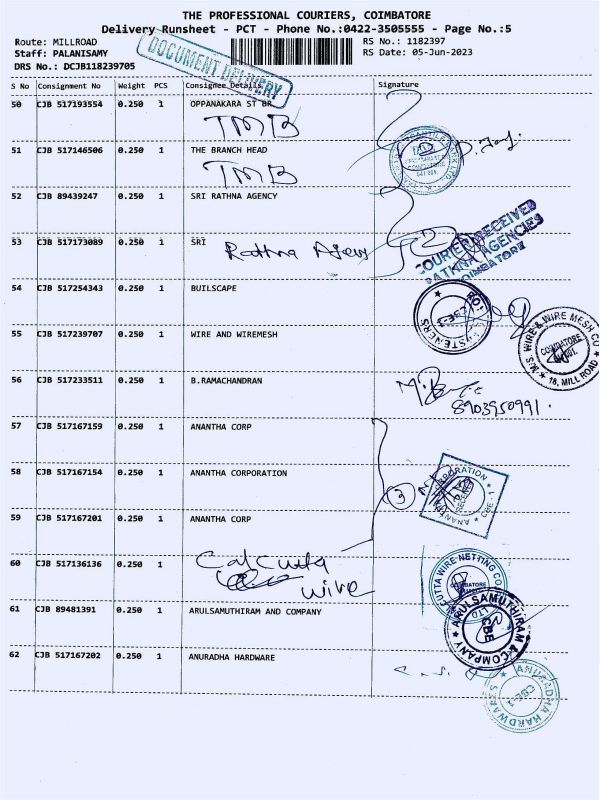 THE PROFESSIONAL COURIERS, COIMBATORE
Delivery Runsheet - PCT - Phone No.:0422-3505555 - Page No.:5
Route: MILLROAD
RS No.: 1182397
Staff: PALANISAMY
RS Date: 05-Jun-2023
DRS No.: DCJB118239705
DOCUMENT DELIVERY
S No Consignment No Weight PCS Consignee Details Signature
50 CJB 517193554 0.250 1 OPPANAKARA ST BR
TMB
51 CJB 517146506 0.250 1 THE BRANCH HEAD
TMB
52 CJB 89439247 0.250 1 SRI RATHNA AGENCY
53 CJB 517173089 0.250 1 SRI
Rathna
COURIER RECEIVED
RATHNA AGENCIES
COIMBATORE
54 CJB 517254343 0.250 1 BUILSCAPE
55 CJB 517239707 0.250 1 WIRE AND WIREMESH
M/S. WIRE & WIRE MESH CO
COIMBATORE
18, MILL ROAD
56 CJB 517233511 0.250 1 B.RAMACHANDRAN
8903950991.
57 CJB 517167159 0.250 1 ANANTHA CORP
58 CJB 517167154 0.250 1 ANANTHA CORPORATION
3
ANANTHA CORPORATION
CBE - 1
59 CJB 517167201 0.250 1 ANANTHA CORP
60 CJB 517136136 0.250 1
Calcutta
wire
CUTTA WIRE NETTING CO
61 CJB 89481391 0.250 1 ARULSAMUTHIRAM AND COMPANY
ARULSAMUTHIRAM & COMPANY
CBE
62 CJB 517167202 0.250 1 ANURADHA HARDWARE
ANURADHA HARDWARE
CBE-1